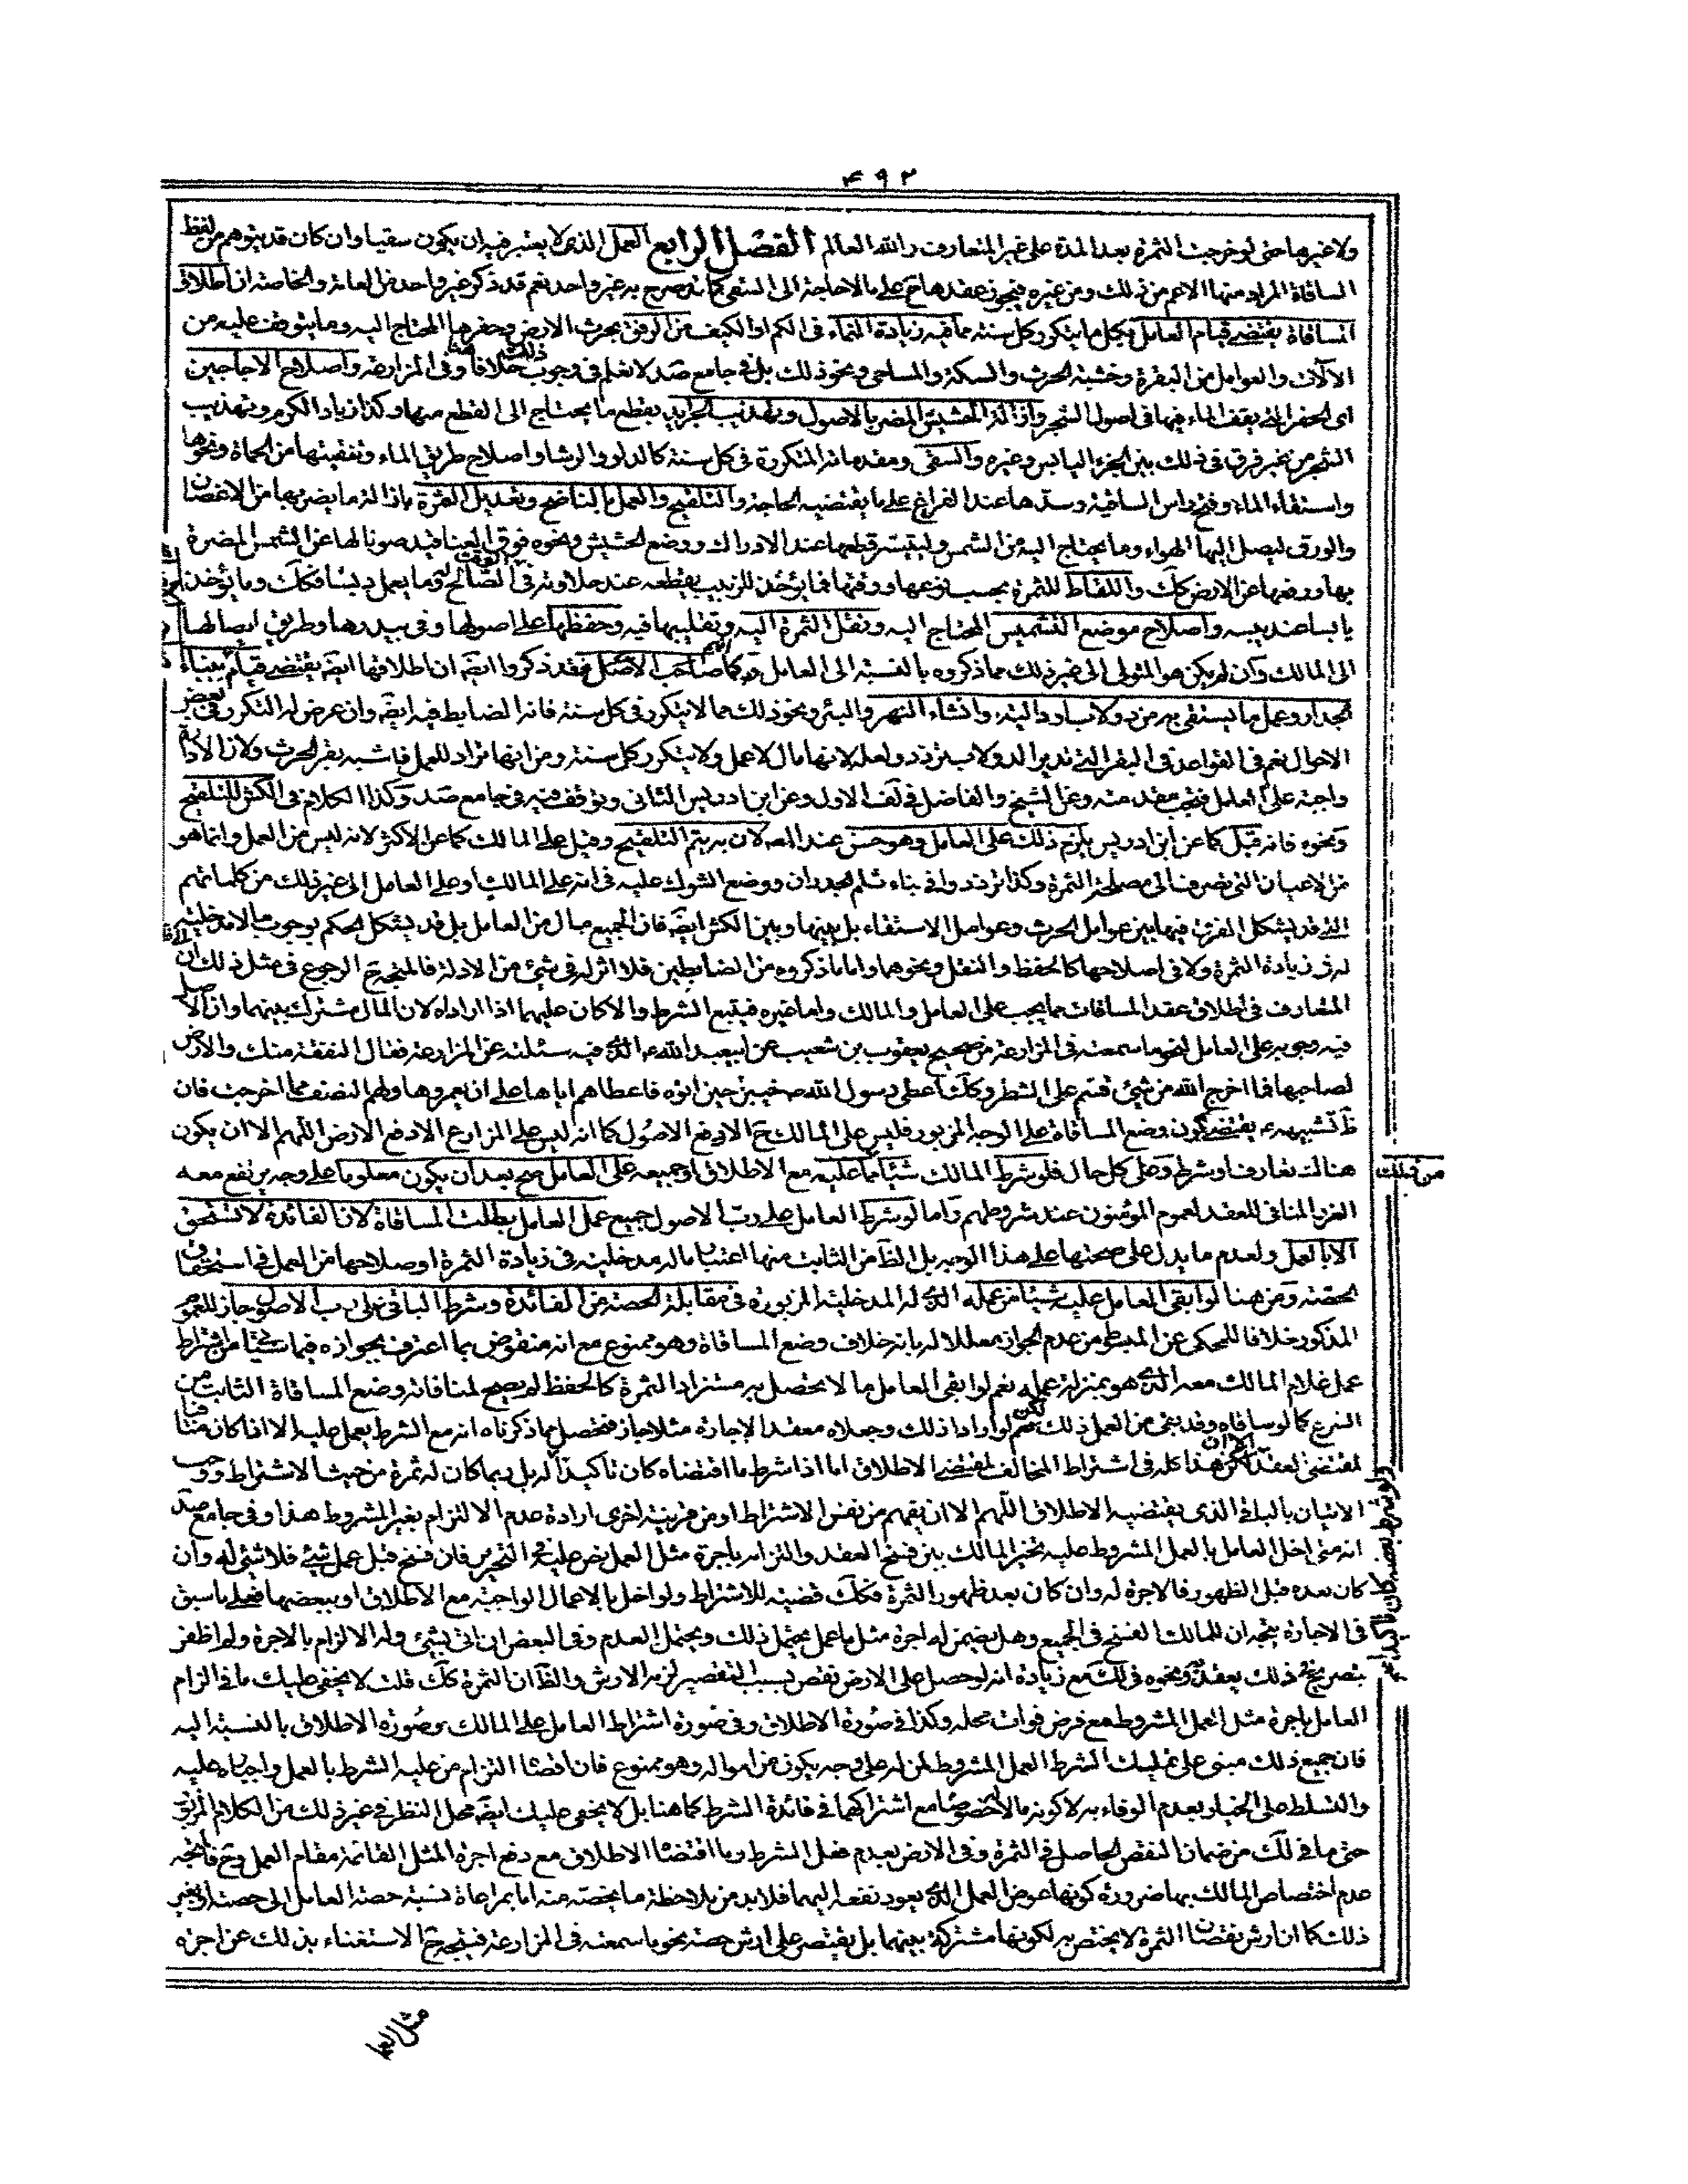 ۴۹۲
ولا غيرها حتى لو خرجت الثمرة بعد المدة على غير المتعارف والله العالم الفصل الرابع العمل الذي لا يعتبر فيه ان يكون سقيا وان كان قد يتوهم من لفظ
المساقاة المراد منها الاعم من ذلك ومن غيره فيجوز عقدها ح على ما لا حاجة الى السقي كما صرح به غير واحد نعم قد ذكر غير واحد من العامة والخاصة ان اطلاق
المساقاة يقتضى قيام العامل بكل ما يتكرر كل سنة مما فيه زيادة النماء فى الكم او الكيف من الرفق بحرث الارض وحفرها المحتاج اليه وما يتوقف عليه من
الآلات والعوامل من البقرة وخشبة الحرث والسكة والمساحى ونحو ذلك بل فى جامع صد لا نعلم فى وجوب ذلك خلافا هنا وفى المزارعة واصلاح الاجاجين
اى الحفر التى يقف الماء فيها فى اصول الشجر وازالة الحشيش المضر بالاصول وتهذيب الجرايد بقطع ما يحتاج الى القطع منها وكذا زياد الكرم وتهذيب
الشجر من غير فرق فى ذلك بين الجزء اليابس وغيره والسقى ومقدماته المتكررة فى كل سنة كالدلو والرشا واصلاح طريق الماء وتنقيتها من الحماة ونحوها
واستقاء الماء وفتح راس الساقية وسدها عند الفراغ على ما يقتضيه الحاجة والتلقيح والعمل بالناضح وتعديل الثمرة بازالة ما يضر بها من الاغصان
والورق ليصل اليها الهواء وما يحتاج اليه من الشمس وليتيسر قطعها عند الادراك ووضع الحشيش ونحوه فوق العناقيد صونا لها عن الشمس المضرة
بها ورفعها عن الارض كك واللقاط للثمرة بحسب نوعها ووقتها فما يؤخذ للزبيب يقطعه عند حلاوته فى الوقت الصالح له وما يعمل دبسا فكك وما يؤخذ
يابسا عند يبسه واصلاح موضع التشميس المحتاج اليه ونقل الثمرة اليه وتقليبها فيه وحفظها على اصولها وفى بيدرها وطريق ايصالها
الى المالك وان لم يكن هو المتولى الى غير ذلك مما ذكروه بالنسبة الى العامل واما صاحب الاصل فقد ذكروا ايضه ان اطلاقها ايضه يقتضى قيامه ببناء
الجدار وعمل ما يستقى به من دولاب او دالية وانشاء النهر والبئر ونحو ذلك مما لا يتكرر فى كل سنة فانه الضابط فيه ايضه وان عرض له التكرر فى بعض
الاحوال نعم فى القواعد فى البقر التى تدير الدولاب تردد ولعله لانها مال لا عمل ولا يتكرر كل سنة ومن انها تراد للعمل فاشبه بقر الحرث ولان الادارة
واجبة على العامل فتجب مقدمته وعن الشيخ والفاضل فى لف الاول وعن ابن ادريس الثانى وتوقف فيه فى جامع صد وكذا الكلام فى الكش للتلقيح
ونحوه فانه قيل كما عن ابن ادريس يلزم ذلك على العامل وهو حسن عند المصـ لان به يتم التلقيح وقيل على المالك كما عن الاكثر لانه ليس من العمل وانما هو
من الاعيان التى تصرف الى مصلحة الثمرة وكذا ترددوا فى بناء ثلم الجدران ووضع الشوك عليه فى انه على المالك او على العامل الى غير ذلك من كلماتهم
التى قد يشكل الفرق فيها بين عوامل الحرث وعوامل الاستقاء بل بينها وبين الكش ايضه فان الجميع مال من العامل بل قد يشكل الحكم بوجوب ما لا مدخلية
له فى زيادة الثمرة ولا فى اصلاحها كالحفظ والنقل ونحوهما واما ما ذكروه من الضابطين فلا اثر له فى شئ من الادلة فالمتجه ح الرجوع فى مثل ذلك الى
المتعارف فى اطلاق عقد المساقات مما يجب على العامل والمالك واما غيره فيتبع الشرط والا كان عليهما اذا اراداه لان المال مشترك بينهما وان الاصل
فيه وجوبه على العامل لنحو ما سمعته فى المزارعة من صحيح يعقوب بن شعيب عن ابيعبد الله ع الذى فيه سئلته عن المزارعة فقال النفقة منك والارض
لصاحبها فما اخرج الله من شئ قسم على الشطر وكك اعطى رسول الله ص خيبر حين اتوه فاعطاهم اياها على ان يعمروها ولهم النصف مما اخرجت فان
ظ تشبيهه ع يقتضى كون وضع المساقاة على الوجه المزبور فليس على المالك ح الا دفع الاصول كما انه ليس على المزارع الا دفع الارض اللهم الا ان يكون
هناك تعارف او شرط وعلى كل حال فلو شرط المالك شيئا مما عليه مع الاطلاق او جميعه على العامل صح بعد ان يكون معلوما على وجه يرتفع معه
من قبلك
الغرر المنافى للعقد لعموم المؤمنون عند شروطهم واما لو شرط العامل على رب الاصول جميع عمل العامل بطلت المساقاة لان الفائدة لا تستحق
الا بالعمل ولعدم ما يدل على صحتها على هذا الوجه بل الظ من الثابت منها اعتبار ما له مدخلية فى زيادة الثمرة او صلاحها من العمل فى استحقاق
الحصة ومن هنا لو ابقى العامل عليه شيئا من عمله الذى له المدخلية المزبورة فى مقابلة الحصة من الفائدة وشرط الباقى على رب الاصول جاز للعموم
المذكور خلافا للمحكى عن المبسوط من عدم الجواز معللا له بانه خلاف وضع المساقاة وهو ممنوع مع انه منقوض بما اعترف بجوازه فيما سيئ من اشتراط
عمل غلام المالك معه الذى هو بمنزلة عمله نعم لو ابقى العامل ما لا يحصل به مستزاد الثمرة كالحفظ لم يصح لمنافاته وضع المساقاة الثابت من
الشرع كما لو ساقاه وقد بقى من العمل ذلك نعم لو ارادا ذلك وجعلاه معقد الاجارة مثلا جاز فتحصل مما ذكرناه انه مع الشرط يعمل عليه الا اذا كان منافيا
لمقتضى العقد لكن هذا كله فى اشتراط المخالف لمقتضى الاطلاق اما اذا شرط ما اقتضاه كان تاكيدا له بل ربما كان له ثمرة من حيث الاشتراط ووجب
الاتيان بالباقى الذى يقتضيه الاطلاق اللهم الا ان يفهم من نفس الاشتراط او من قرينة اخرى ارادة عدم الالتزام بغير المشروط هذا وفى جامع صد
انه متى اخل العامل بالعمل المشروط عليه تخير المالك بين فسخ العقد والتزامه باجرة مثل العمل فان فسخ قبل عمل شئ فلا شئ له وان
كان بعده قبل الظهور فالاجرة له وان كان بعد ظهور الثمرة فكك قضية للاشتراط ولو اخل بالاعمال الواجبة مع الاطلاق او ببعضها فعلى ما سبق
فى الاجارة يتجه ان للمالك الفسخ فى الجميع وهل يضمن له اجرة مثل ما عمل يحتمل ذلك ويحتمل العدم وفى البعض ان اتى بشئ وله الالزام بالاجرة ولم اظفر
بتصريح فى ذلك يعتد به ونحوه فى لك مع زيادة انه لو حصل على الارض نقص بسبب التقصير لزمه الارش والظ ان الثمرة كك قلت لا يخفى عليك ما فى الزام
العامل باجرة مثل العمل المشروط مع فرض فوات محله وكذا فى صورة الاطلاق وفى صورة اشتراط العامل على المالك وصورة الاطلاق بالنسبة اليه
فان جميع ذلك مبنى على تمليك الشرط العمل المشروط لمن له على وجه يكون من امواله وهو ممنوع فان اقصاه التزام من عليه الشرط بالعمل واجباره عليه
والتسلط على الخيار بعدم الوفاء به لا كونه مالا خصوصا مع اشتراكهما فى فائدة الشرط كما هنا بل لا يخفى عليك ايضه محل النظر فى غير ذلك من الكلام المزبور
حتى ما فى لك من ضمان النقص الحاصل فى الثمرة وفى الارض بعدم فعل الشرط وما اقتضاه الاطلاق مع دفع اجرة المثل القائمة مقام العمل وح فالمتجه
عدم اختصاص المالك بها ضرورة كونها عوض العمل الذى يعود نفعه اليهما فلا بد من ملاحظة ما يخصه منه اما بمراعاة نسبة حصة العامل الى حصته او بغير
ذلك كما ان ارش نقصان الثمرة لا يختص به لكونها مشتركة بينهما بل يقتصر على ارش حصته نحو ما سمعته فى المزارعة فيتجه ح الاستغناء بذلك عن اجرة
مثل العمل